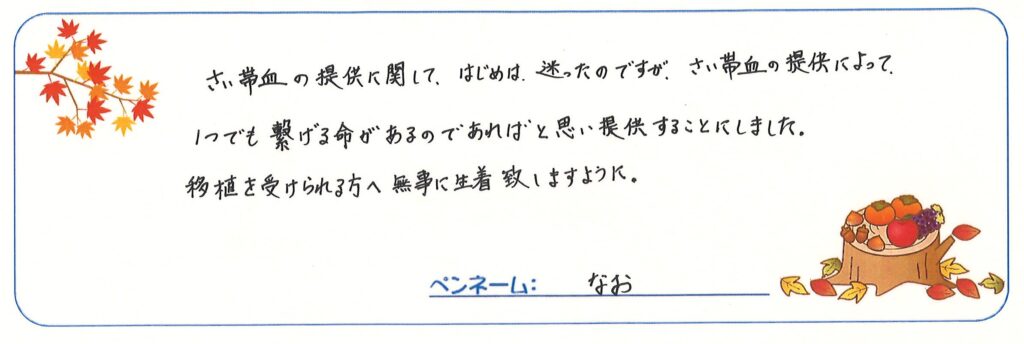 さい帯血の提供に関して、はじめは、迷ったのですが、さい帯血の提供によって、
1つでも繋げる命があるのであればと思い提供することにしました。
移植を受けられる方へ無事に生着致しますように。
ペンネーム： なお